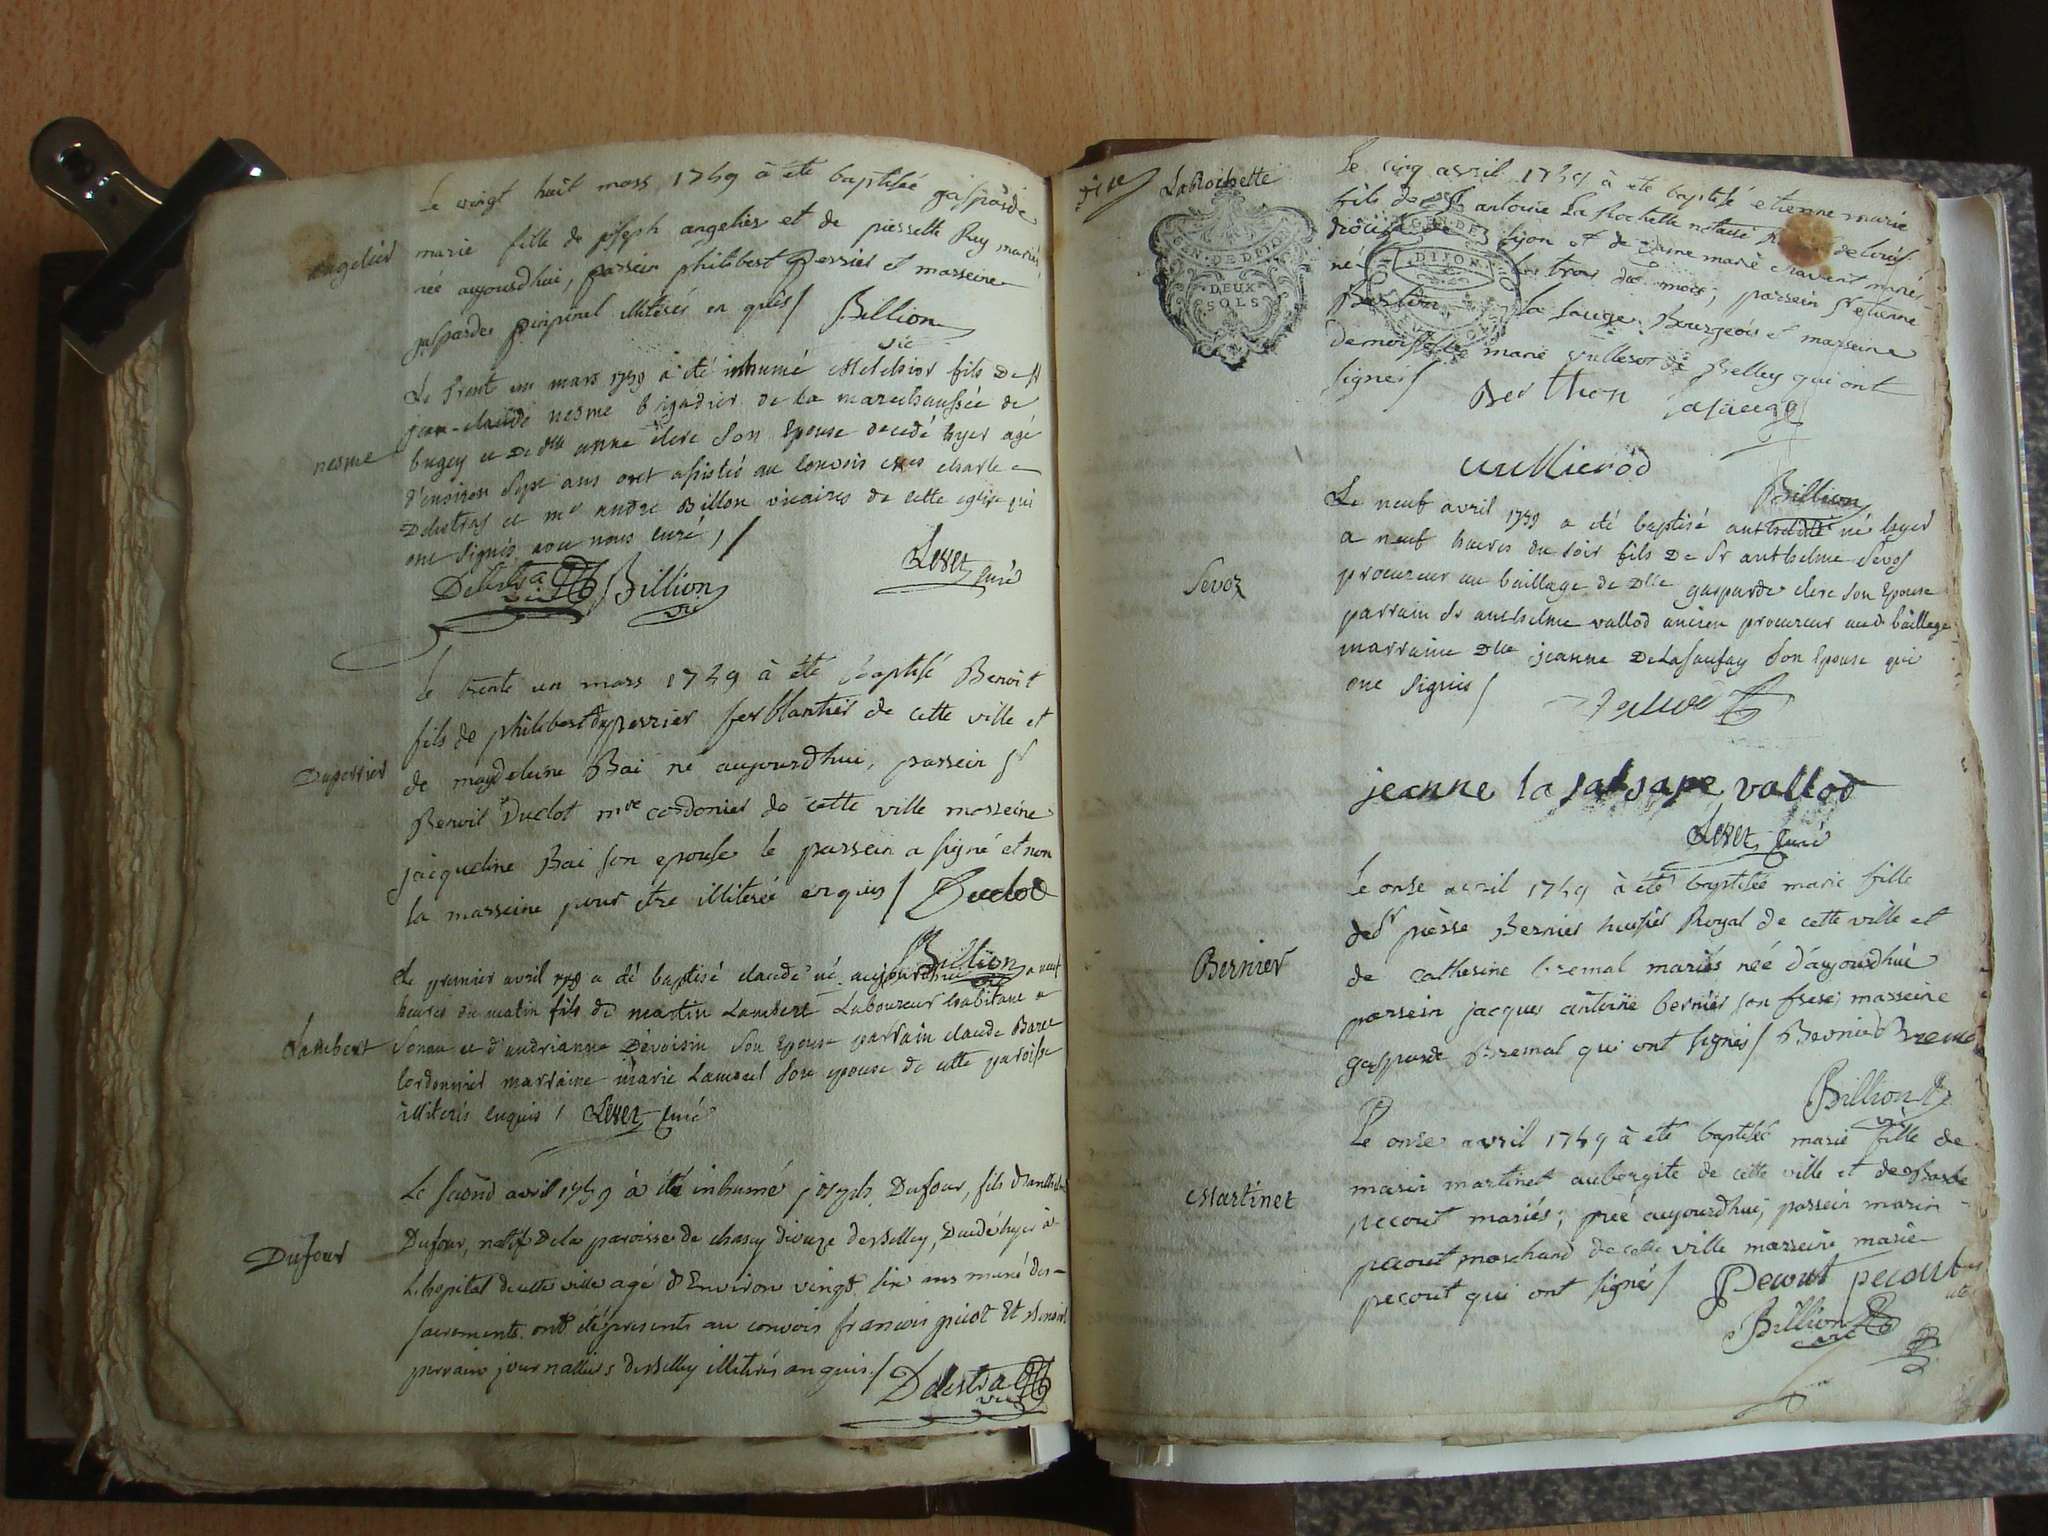 Le vingt huit mars 1759 à été baptisée gasparde
angelier marie fille de joseph angelier et de pierrette Rey mariés,
née aujourdhui, parrein philibert Perrier et marreine
gasparde pinginel illiterés en quis / Billion
vic
Le trente un mars 1759 a été inhumé Melchior fils De Sr
jean-claude nesme brigadier de la marechaussée de
nesme bugey et De Dlle anne clerc Son Epouse decedé hyer agé
d'environ Sept ans ont assistés au convois mes charle
Delestras et me andré Billon vicaires de cette eglise qui
ont Signés avec nous curé, /
Delestra vic Billion vic Levet curé
Le trente un mars 1759 à été baptisé Benoit
fils de philibert duperrier ferblantier de cette ville et
Duperrier de magdeleine Bai né aujourdhui, parrein sr
Benoit Duclot mre cordonier de cette ville marreine
jacqueline Bai son epouse le parrein a signé et non
la marreine pour être illiterée enquis / Duclod
Billion
Le premier avril 1759 a été baptisé claude né aujourdhui a neuf
heures du matin fils de martin Lambert Laboureur habitant a
Lambert Sonau et d'andrianne Devoisin Son Epouse parrain claude Baret
Cordonnier marraine marie Lambert Son epouse de cette paroisse
illiterés enquis / Levet curé
Le second avril 1759 à été inhumé joseph Dufour, fils d'anthelme
Dufour Dufour, natif de la paroisse de chasey diocèze de Belley, Decedé hyer à
L'hopital de cette ville agé d'Environ vingt six ans muni des
sacrements. ont été presents au convois francois picot Et Benoit
perrain journalliers de Belley illiterés anquis. / Delestra
vic
LaRochette Le cinq avril 1759 à été baptisé etienne marie
fils de Sr antoine La Rochette notaire
diocèse de Lijon et de dame marie chavent mariés
né le trois du mois, parrein Sr etienne
Berthon La sauge Bourgeois et marreine
demoiselle marie vullierod de Belley qui ont
signés /
GEN. DE DIJON
DEUX
SOLS
DIJON
Berthon Lasauge
vullierod
Billion
Le neuf avril 1759 a été baptisé anthelme né hyer
a neuf heures du soir fils De Sr anthelme Sevoz
Sevoz procureur au baillage de Dlle gasparde clerc Son Epouse
parrain Sr anthelme vallod ancien procureur aud. baillage
marraine Dlle jeanne DeLasausay Son Epouse qui
ont Signés /
jeanne la salsape vallod
Levet curé
Le onze avril 1759 à été baptisée marie fille
de Sr pierre Bernier huissier Royal de cette ville et
Bernier de catherine bremal mariés née d'aujourdhui
parrein jacques antoine bernier son frere; marreine
gasparde Bremal qui ont signés / Bernier Bremal
Billion
vic
Le onze avril 1759 à été baptisée marie fille de
marin martinet aubergite de cette ville et de Barbe
Martinet pecout mariés; née aujourdhui, parrein marin
pecout marchand de cette ville marreine marie
pecout qui ont signés / Pecout pecout
Billion
vic